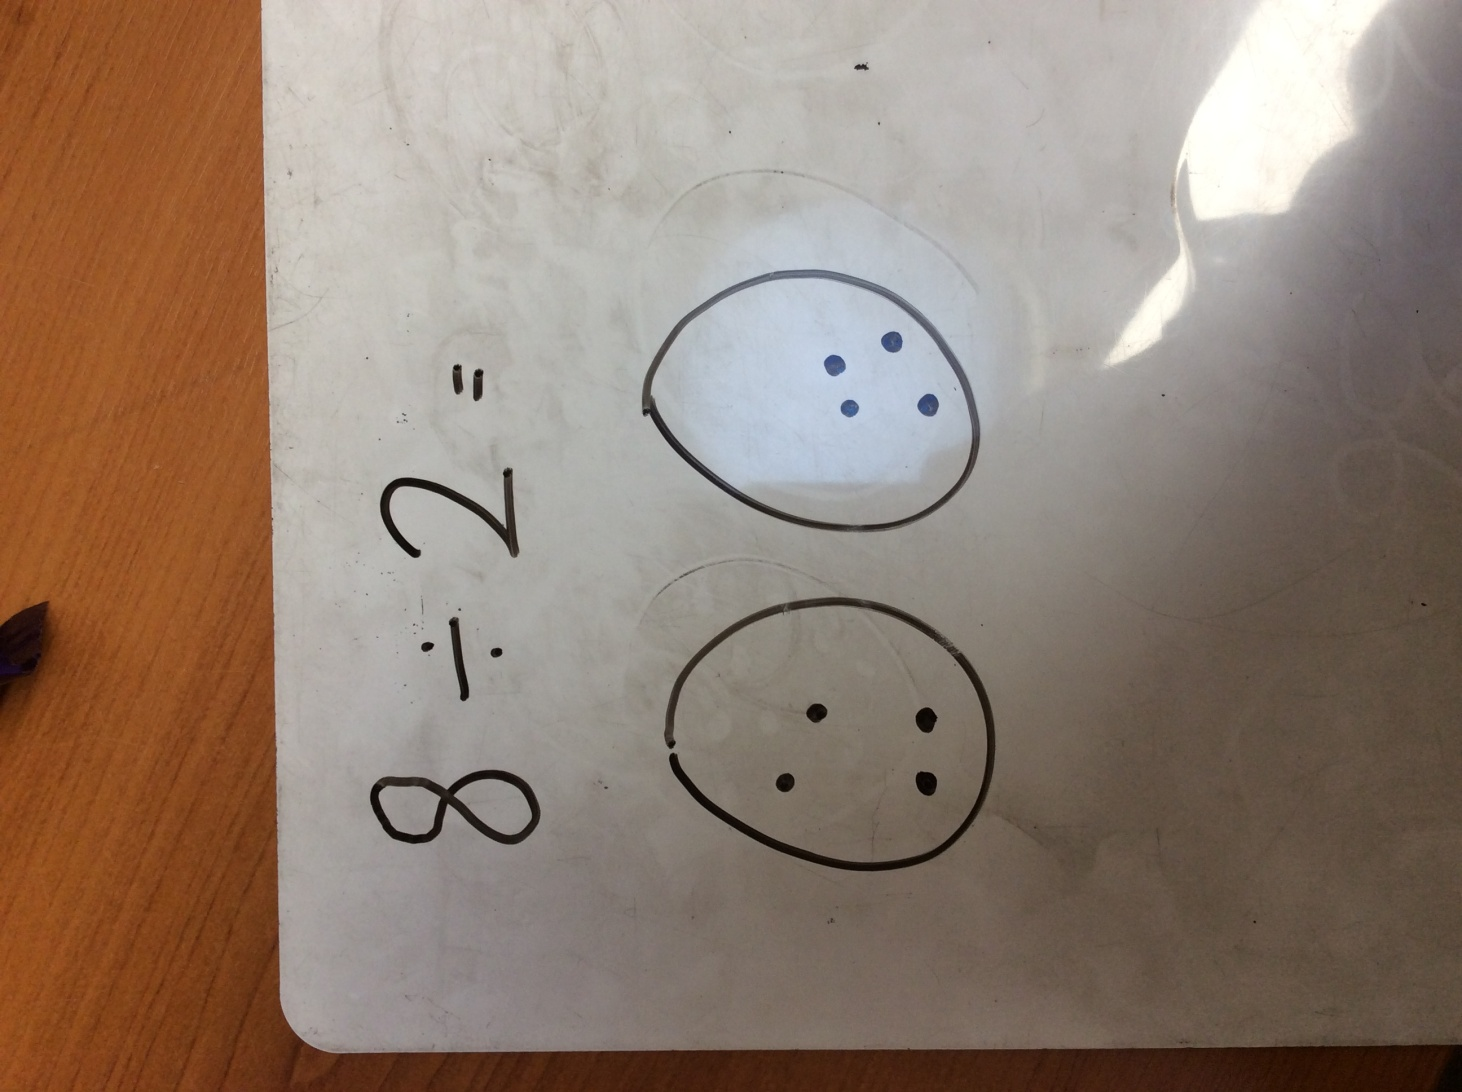 8 ÷ 2 =